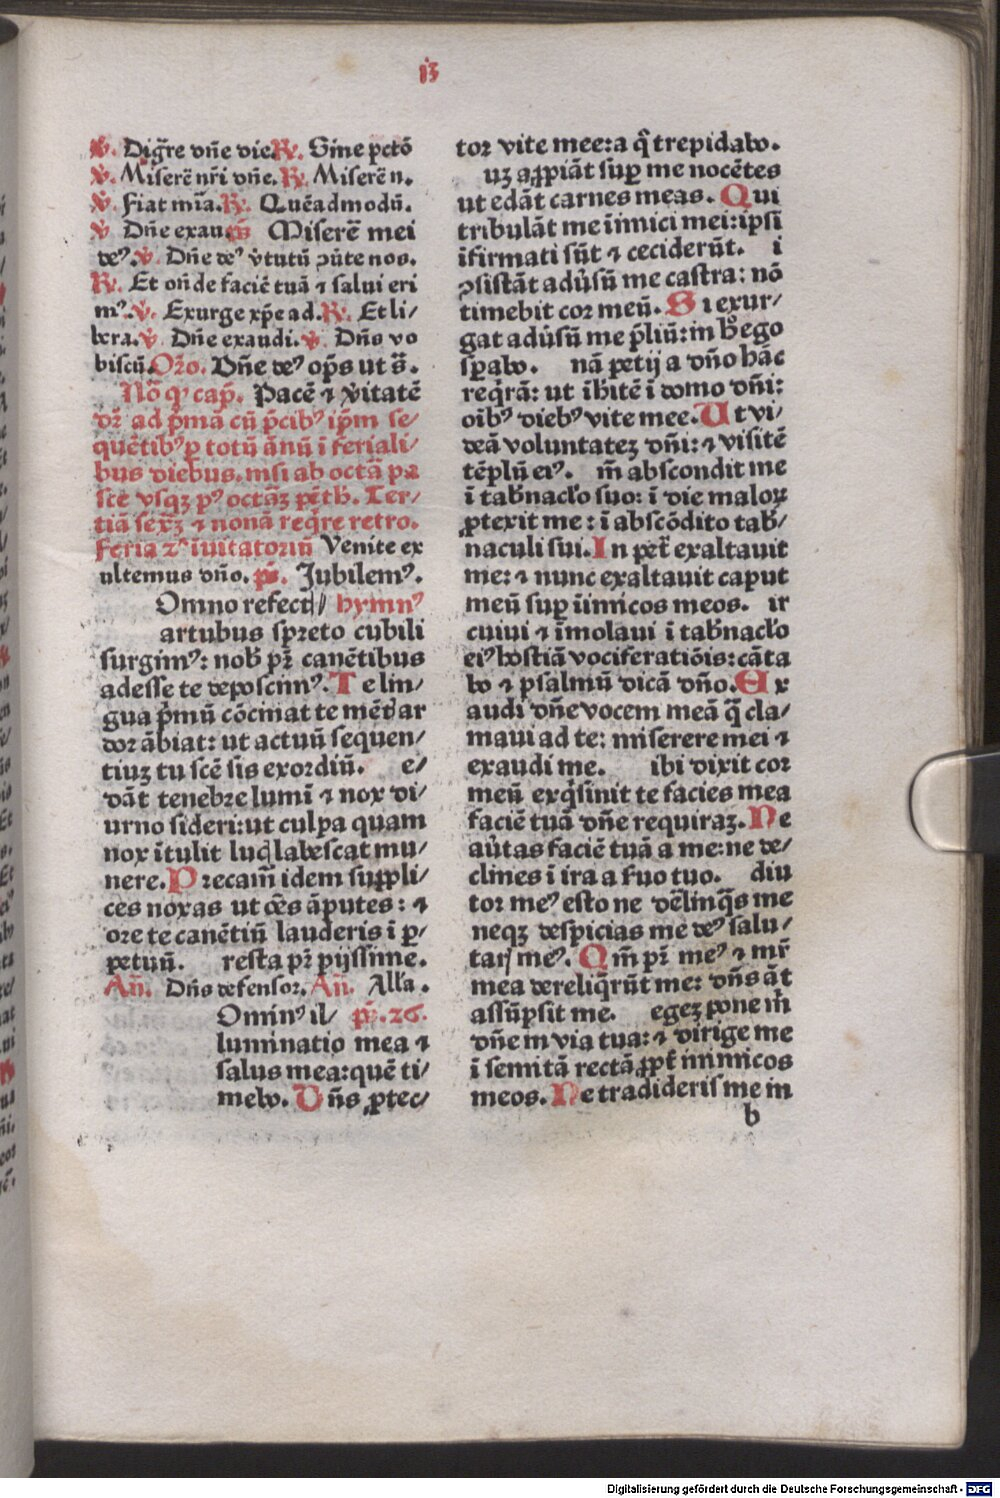 13
℣. Dig̃re dñe die ℟. Sine pctõ
℣. Miserẽ nr̃i dñe. ℟. Miserẽ n.
℣. Fiat mĩa. ℟. Quẽadmodũ.
℣ Dñe exau. p̃s Miserẽ mei
deꝰ. ℣. Dñe deꝰ v̓tutũ ↄũte nos.
℟. Et oñde faciẽ tuã ⁊ salui eri
mꝰ. ℣. Exurge xp̃e ad. ℟. Et li/
bera. ℣. Dñe exaudi. ℣. Dñs vo
biscũ. Orõ. Dñe deꝰ op̃s ut s̃.
Nõ ꝙ cap̃. Pacẽ ⁊ v̓itatẽ
dr̃ ad p̓mã cũ p̃cibꝰ ip̃m se/
quẽtibꝰ ꝑ totũ ãnũ ĩ feriali/
bus diebus. nisi ab octã pa
sce vsqꝫ pꝰ octãꝫ pẽth. Ter/
tiã sexꝫ̃ ⁊ nonã req̓re retro.
Feria 2ᵃ ĩuitatoriũ Venite ex
ultemus dño. p̃s. Jubilemꝰ.
Omno refect// hymnꝰ
artubus spreto cubili
surgimꝰ: nob̃ pr̃ canẽtibus
adesse te deposcimꝰ. Te lin/
gua p̓mũ cõcinat te mẽt̃ ar
dor ãbiat: ut actuũ sequen/
tiuꝫ tu scẽ sis exordiũ. e/
dãt tenebre lumĩ ⁊ nox di/
urno sideri: ut culpa quam
nox ĩtulit luc̃ labescat mu/
nere. Precam̃ idem suppli/
ces noxas ut oẽs ãputes: ⁊
ore te canẽtiũ lauderis ĩ ꝑ/
petuũ. resta pr̃ pijssime.
Añ. Dñs defensor. Añ. Alla.
Ominꝰ il/ p̃s. 26.
luminatio mea ⁊
salus mea: quẽ ti/
mebo. Dñs ꝓtec/
tor vite mee: a q̊ trepidabo.
uꝫ aꝓpiãt suꝑ me nocẽtes
ut edãt carnes meas. Qui
tribulãt me ĩimici mei: ipsi
ĩfirmati sũt ⁊ ceciderũt. i
ↄsistãt adũsũ me castra: nõ
timebit cor meũ. Si exur/
gat adũsũ me p̃liũ: in h̊ ego
sperabo. nã petij a dño hãc
req̓rã: ut ĩhĩtẽ ĩ domo dñi:
oĩbꝰ diebꝰ vite mee. Ut vi/
deã voluntateꝫ dñi: ⁊ visitẽ
tẽplũ eiꝰ. m̃ abscondit me
ĩ tab̃naclo suo: ĩ die maloꝝ
ꝓtexit me: ĩ abscõdito tab̃/
naculi sui. In pet̃ exaltauit
me: ⁊ nunc exaltauit caput
meũ suꝑ ĩimicos meos. ir
cuiui ⁊ ĩmolaui ĩ tab̃naclo
eiꝰ hostiã vociferatiõis: cãta
bo ⁊ psalmũ dicã dño. Ex
audi dñe vocem meã q̃ cla/
maui ad te: miserere mei ⁊
exaudi me. ibi dixit cor
meũ exq̓siuit te facies mea
faciẽ tuã dñe requiraꝫ. Ne
aũtas faciẽ tuã a me: ne de/
clines ĩ ira a ſuo tuo. diu
tor meꝰ esto ne dẽlinq̃s me
neqꝫ despicias me deꝰ salu/
tarꝭ meꝰ. Qm̃ pr̃ meꝰ ⁊ mr̃
mea dereliq̓rũt me: dñs ãt
assũpsit me. egeꝫ pone m̃
dñe in via tua: ⁊ dirige me
ĩ semitã rectã ꝓpt̃ inimicos
meos. Ne tradideris me in
b
Digitalisierung gefördert durch die Deutsche Forschungsgemeinschaft - DFG